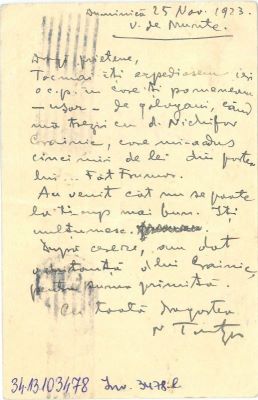 Duminică 25 Nov. 1923.
V. de Munte.
Dragă prietene,
Tocmai îți expediasem ieri
o c.p. în care îți pomeneam
— ușor — de gologani, când
mă trezii cu d. Nichifor
Crainic, care mi-aduse
cinci mii de lei din partea
lui... Făt Frumos.
Au venit cât nu se poate
la timp mai bun. Îți
mulțumesc.
După cerere, am dat
chitanță d lui Crainic,
pentru suma primită.
Cu toată dragostea
N
34.13103478 Inv. 3478